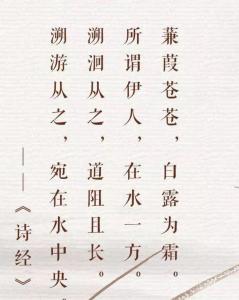 蒹葭苍苍，白露为霜。
所谓伊人，在水一方。
溯洄从之，道阻且长。
溯游从之，宛在水中央。
——《诗经》